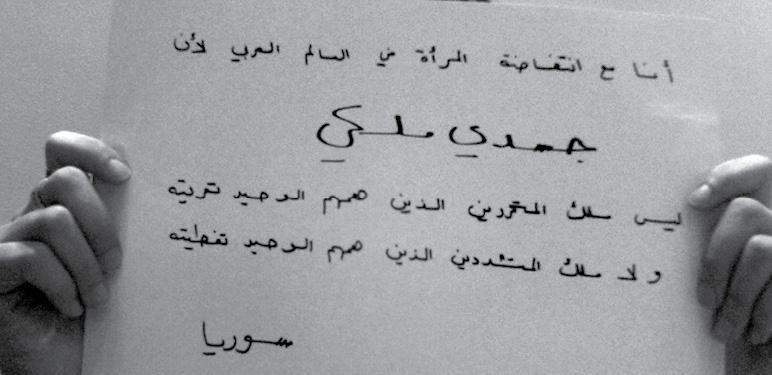 أنا مع انتفاضة المرأة في العالم العربي لأن
جسدي ملكي
ليس ملك المتحررين الذين همهم الوحيد تعريته
ولا ملك المتشددين الذين همهم الوحيد تغطيته
سوريا